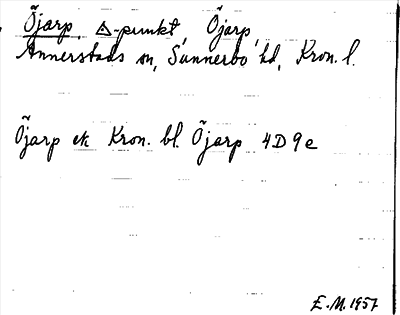 Öjarp, △-punkt, Öjarp,
Annerstads sn, Sunnerbo hd, Kron. l.
Öjarp ek Kron. bl. Öjarp 4D9e
E.M. 1957